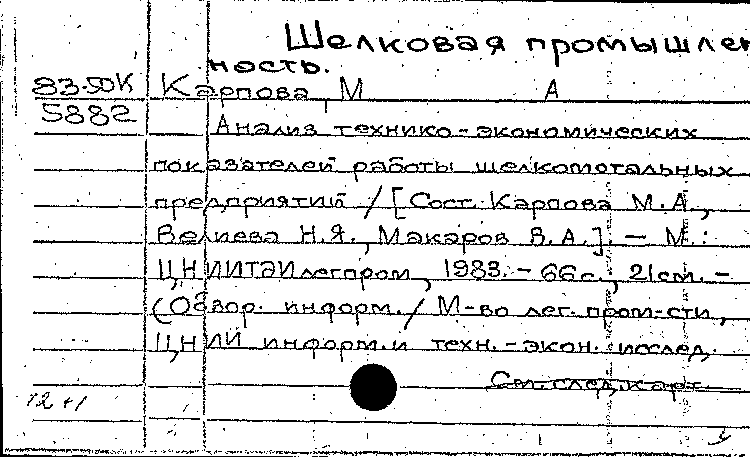 Шелковая промышлен
ность.
83-50К Карпова, М А
5882 Анализ технико-экономических
показателей работы шелкомотальных
предприятий / [Сост. Карпова М.А.,
Велиева Н.Я., Макаров В.А.]. - М.:
ЦНИИТЭИлегпром, 1983. - 66 с.; 21 см. -
(Обзор. информ. / М-во лег. пром-сти,
ЦНИИ информ. и техн.-экон. исслед.
См. след. карт.
12 +1